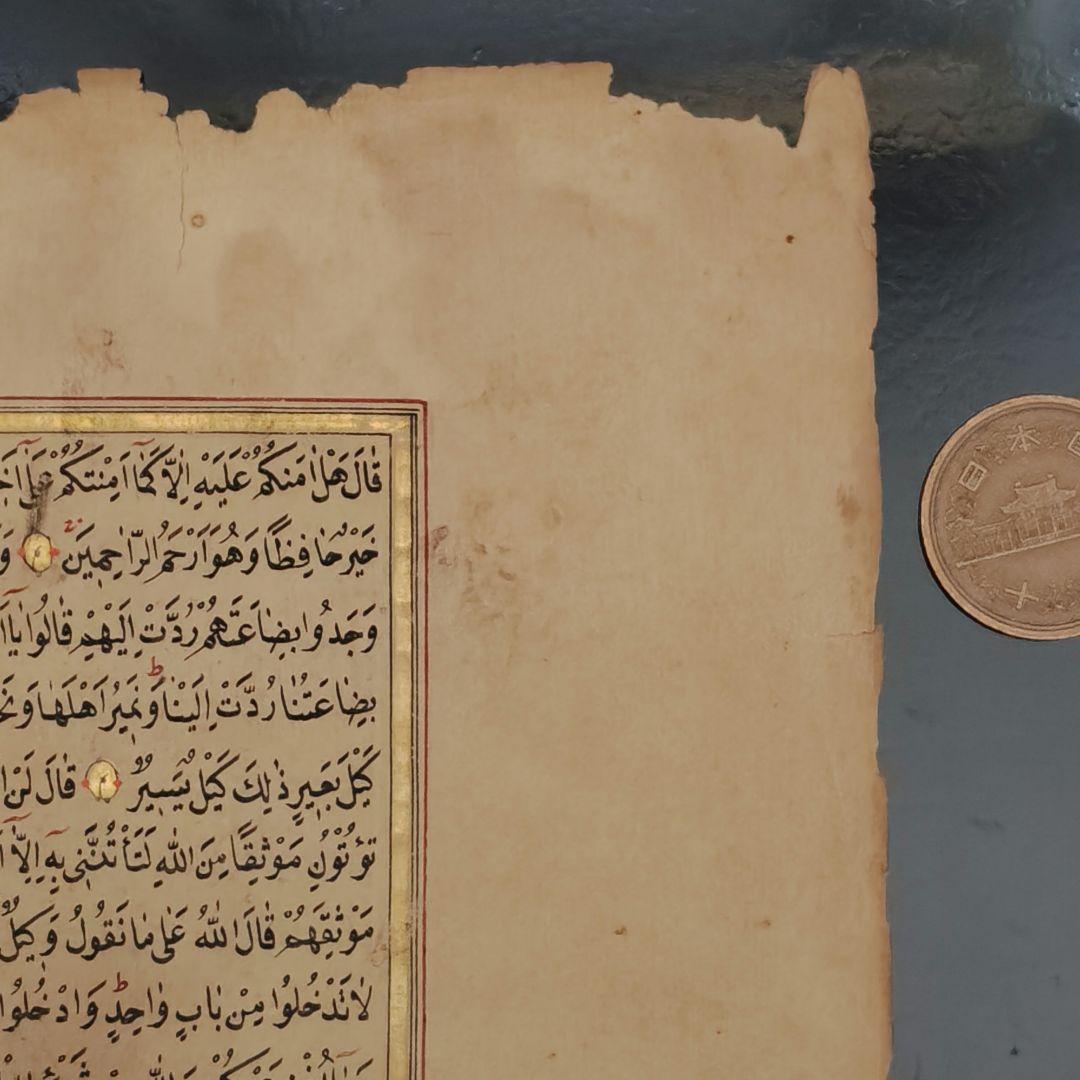 قَالَ هَلْ اٰمَنُكُمْ عَلَيْهِ اِلَّا كَمَٓا اَمِنْتُكُمْ عَلٰٓى
خَيْرٌ حَافِظًا وَهُوَ اَرْحَمُ الرَّاحِمِينَ
وَجَدُوا بِضَاعَتَهُمْ رُدَّتْ اِلَيْهِمْ قَالُوا يَٓا
بِضَاعَتُنَا رُدَّتْ اِلَيْنَا ط وَنَمِيرُ اَهْلَهَا وَ
كَيْلَ بَعِيرٍ ذٰلِكَ كَيْلٌ يَسِيرٌ قَالَ لَنْ
تُؤْتُونِ مَوْثِقًا مِنَ اللّٰهِ لَتَأْتُنَّنِى بِهِٓ اِلَّٓا
مَوْثِقَهُمْ قَالَ اللّٰهُ عَلٰى مَا نَقُولُ وَكِيلٌ
لَا تَدْخُلُوا مِنْ بَابٍ وَاحِدٍ ط وَادْخُلُوا
日本国
十